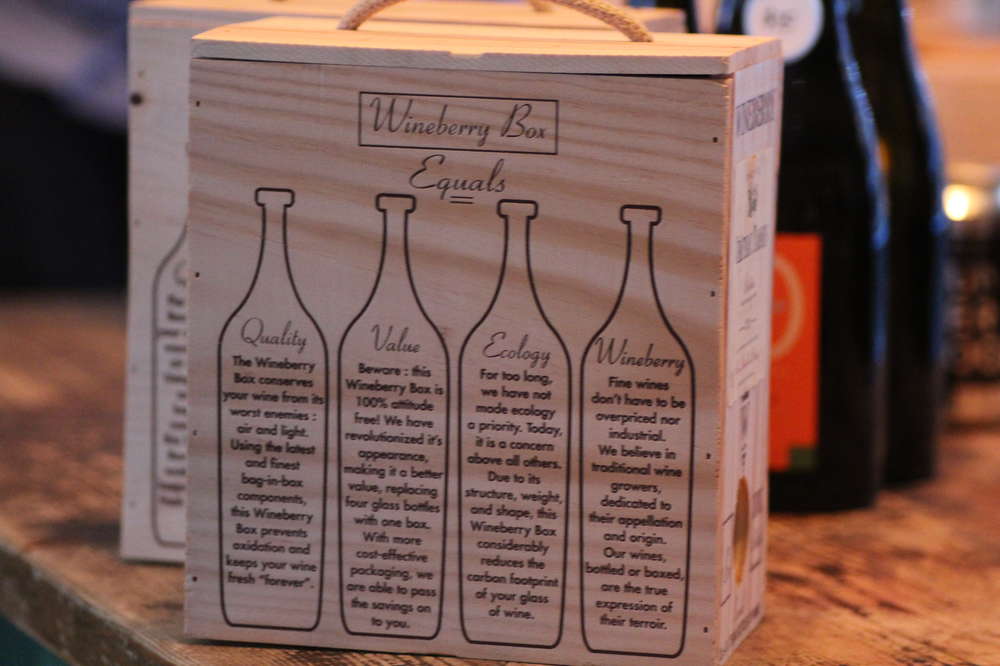 Wineberry Box
Equals
Quality
The Wineberry
Box conserves
your wine from its
worst enemies :
air and light.
Using the latest
and finest
bag-in-box
components,
this Wineberry
Box prevents
oxidation and
keeps your wine
fresh "forever".
Value
Beware : this
Wineberry Box is
100% attitude
free! We have
revolutionized it's
appearance,
making it a better
value, replacing
four glass bottles
with one box.
With more
cost-effective
packaging, we
are able to pass
the savings on
to you.
Ecology
For too long,
we have not
made ecology
a priority. Today,
it is a concern
above all others.
Due to its
structure, weight,
and shape, this
Wineberry Box
considerably
reduces the
carbon footprint
of your glass
of wine.
Wineberry
Fine wines
don't have to be
overpriced nor
industrial.
We believe in
traditional wine
growers,
dedicated to
their appellation
and origin.
Our wines,
bottled or boxed,
are the true
expression of
their terroir.